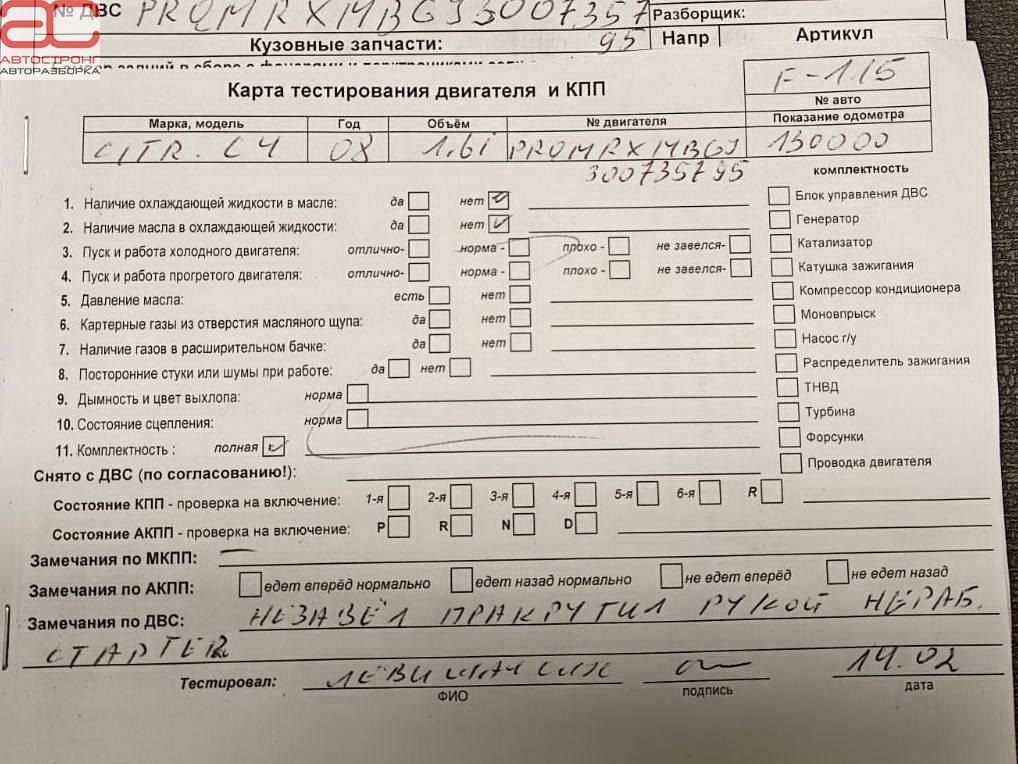 № ДВС PROMRXMBGJ3007357
95
Разборщик:
Кузовные запчасти:
Напр
Артикул
АС
АВТОСТРОНГ
АВТОРАЗБОРКА
Карта тестирования двигателя и КПП
F-115
№ авто
Марка, модель Год Объём № двигателя Показание одометра
CITR. C4 08 1.6i PROMRXMBGJ 130000
300735795
комплектность
1. Наличие охлаждающей жидкости в масле: да нет
2. Наличие масла в охлаждающей жидкости: да нет
3. Пуск и работа холодного двигателя: отлично- норма - плохо - не завелся-
4. Пуск и работа прогретого двигателя: отлично- норма - плохо - не завелся-
5. Давление масла: есть нет
6. Картерные газы из отверстия масляного щупа: да нет
7. Наличие газов в расширительном бачке: да нет
8. Посторонние стуки или шумы при работе: да нет
9. Дымность и цвет выхлопа: норма
10. Состояние сцепления: норма
11. Комплектность : полная
Блок управления ДВС
Генератор
Катализатор
Катушка зажигания
Компрессор кондиционера
Моновпрыск
Насос г/у
Распределитель зажигания
ТНВД
Турбина
Форсунки
Проводка двигателя
Снято с ДВС (по согласованию!):
Состояние КПП - проверка на включение: 1-я 2-я 3-я 4-я 5-я 6-я R
Состояние АКПП - проверка на включение: P R N D
Замечания по МКПП:
Замечания по АКПП: едет вперёд нормально едет назад нормально не едет вперёд не едет назад
Замечания по ДВС: НЕЗАВЕЛ ПРАКРУТИЛ РУКОЙ НЕРАБ.
СТАРТЕР
Тестировал: 14.02
ФИО подпись дата